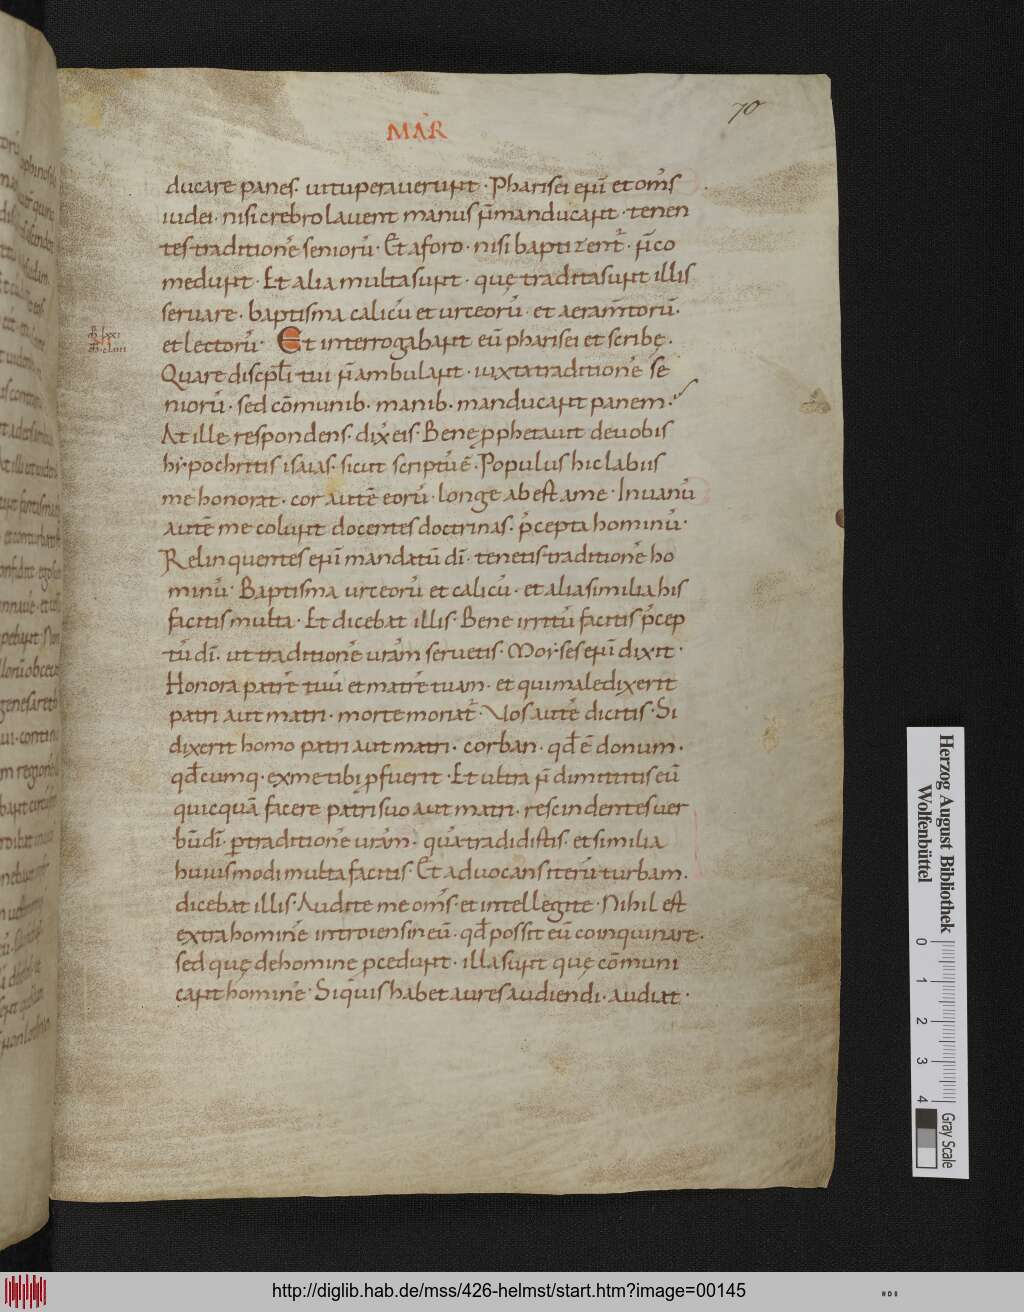 70
MAR̄
ducare panes· uituperauerunt· Pharisei enī et om̄s
iudei· nisi crebro lauent manus n̄ manducant· tenen
tes traditionē seniorū· Et a foro· nisi baptizent̄· n̄ co
medunt· Et alia multa sunt· quę tradita sunt illis
seruare· baptisma calicū et urceorū· et aeram̄torū·
et lectorū· Et interrogabant eū pharisei et scribę·
Quare discip̄li tui n̄ ambulant· iuxta traditionē se
niorū· sed cōmunib· manib· manducant panem·
At ille respondens· dix̄ eis· Bene ꝓphetauit de uobis
hẏpochritis isaias· sicut scriptū ē· Populus hic labiis
me honorat· cor autē eorū· longe abest a me· In uanū
autē me colunt docentes doctrinas· p̄cepta hominū·
Relinquentes enī mandatū dī· tenetis traditionē ho
minū· Baptisma urceorū et calicū· et alia similia his
facitis multa· Et dicebat illis· Bene irritū facitis p̄cep
tū dī· ut traditionē urām seruetis· Moẏses enī dixit·
Honora patrē tuū et matrē tuam· et qui maledixerit
patri aut matri· morte moriat̄· Vos autē dicitis· Si
dixerit homo patri aut matri· corban· qd̄ ē donum·
qd̄cumq· ex me tibi ꝓfuerit· Et ultra n̄ dimittitis eū
quicquā facere patri suo aut matri· rescindentes uer
bū dī· ꝑ traditionē urām· quā tradidistis· et similia
huiusmodi multa facitis· Et aduocans iterū turbam·
dicebat illis· Audite me om̄s· et intellegite· Nihil est
extra hominē introiens in eū· qd̄ possit eū coinquinare·
sed quę de homine ꝓcedunt· illa sunt quę cōmuni
cant hominē· Si quis habet aures audiendi· audiat·
Herzog August Bibliothek
Wolfenbüttel
0 1 2 3 4
Gray Scale
http://diglib.hab.de/mss/426-helmst/start.htm?image=00145